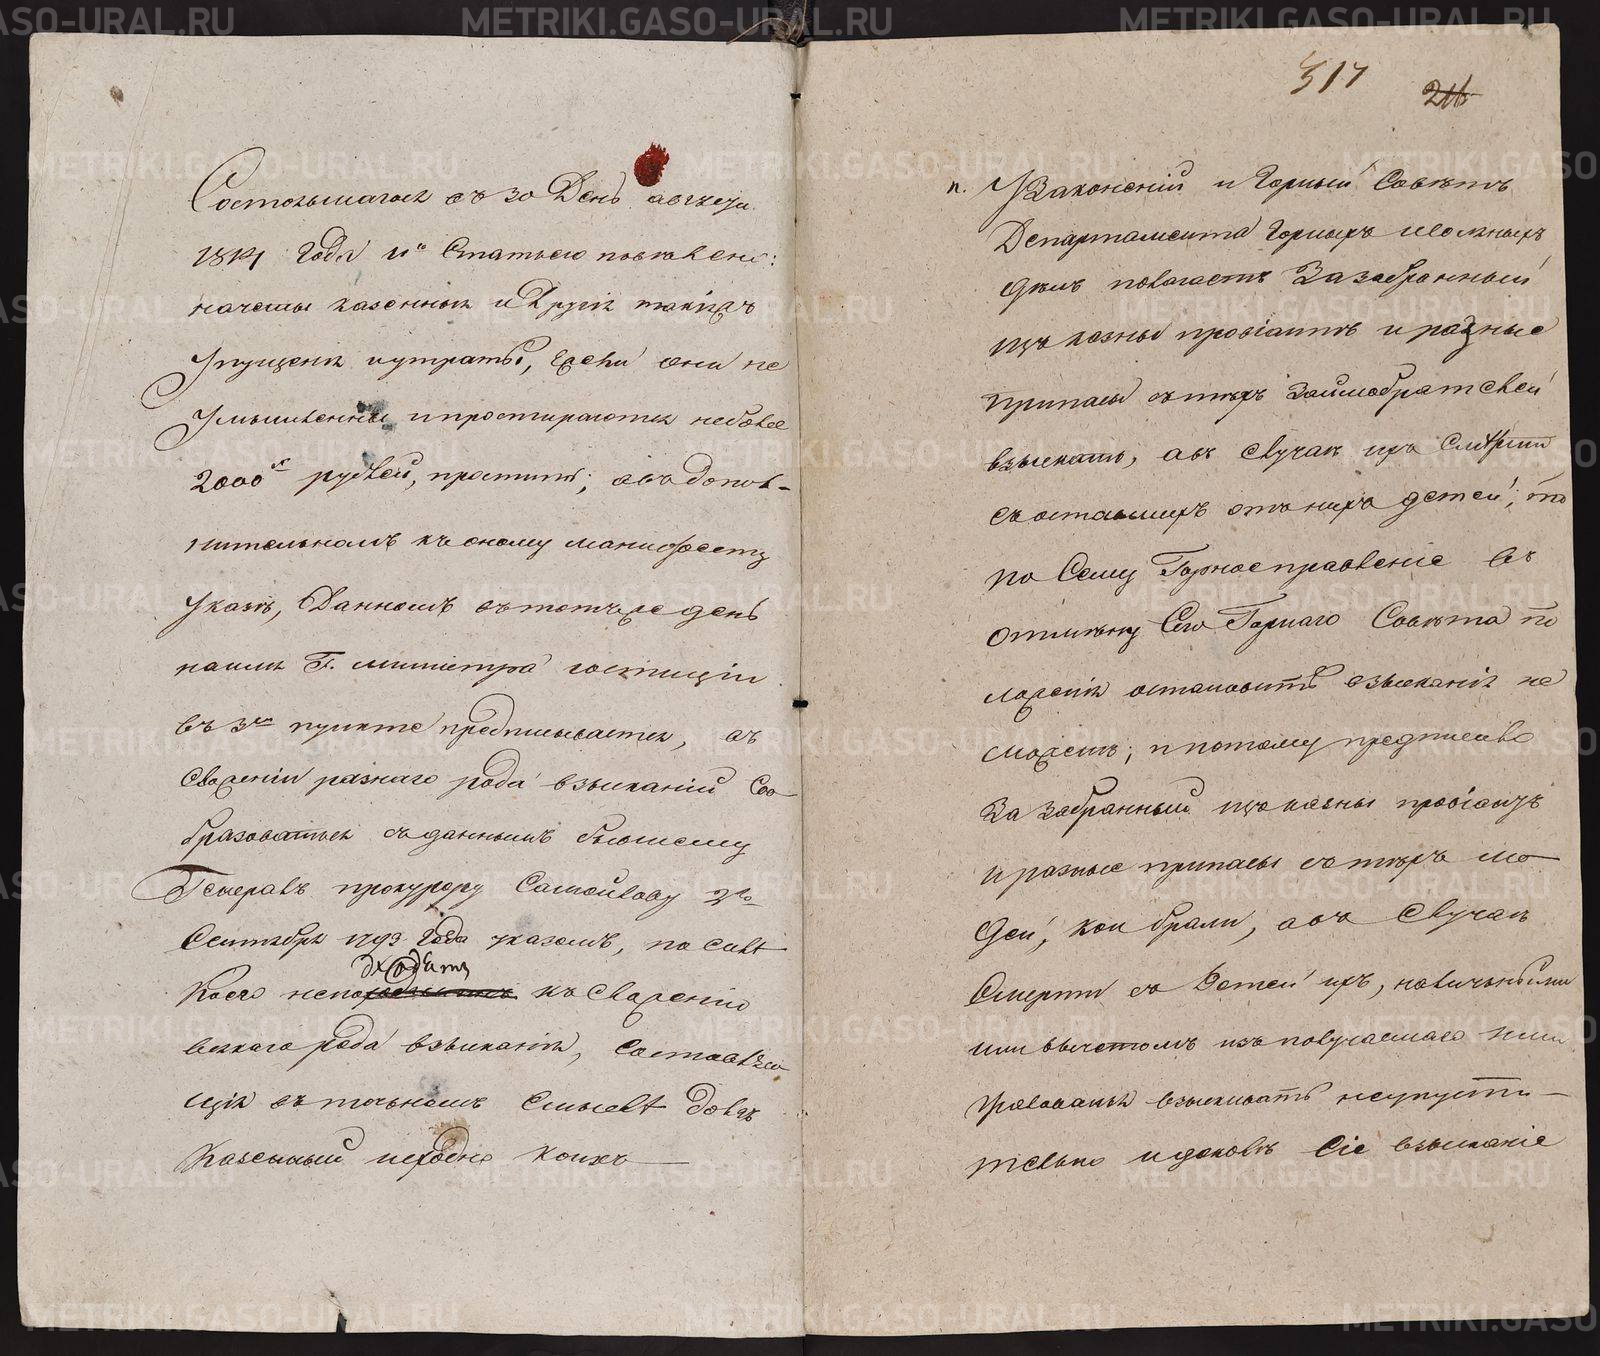 Состоявшагося въ 30 День августа
1814 Года 11ю Статьею повелено:
начеты казенныя и Другія такихъ
упущенія и утраты, Ежели они не
умышленны и простираются неболее
2000хъ рублей, простить; а въ допол-
нительномъ къ оному манифесту
указѣ, Данномъ въ тотъ же день
на имя Г. министра юстиціи
въ 3мъ пунктѣ предписывается, въ
сложеніи разнаго рода взысканій Соо
бразоваться съ даннымъ бывшему
Генералъ прокурору Самойлову 2го
Сентября 1793 Года указомъ, по силѣ
Коего неподходятъ къ Сложенію
всякаго рода взысканія, Составляю
щія въ точномъ Смыслѣ Долгъ
Казенный изъ коихъ
517
216
п. Узаконеній и Горный Совѣтъ
Департамента Горныхъ и соляныхъ
дѣлъ полагаетъ За забранный
изъ казны провіантъ и разные
припасы съ тѣхъ Заимобрателей
взыскать, а въ случаѣ ихъ Смерти
съ оставшихъ отъ нихъ детей; то
по Сему Горное правленіе въ
отмѣну Сего Горнаго Совѣта по
ложенія остановить взысканія не
можетъ; и потому предписано
За Забранный изъ казны провіантъ
и разные припасы съ тѣхъ лю
дей, кои брали, а въ Случаѣ
Смерти съ Детей ихъ, наличными
или вычетомъ изъ получаемаго ими
жалованья взыскивать неупусти-
тельно и доколѣ Сіе взысканіе
METRIKI.GASO-URAL.RU